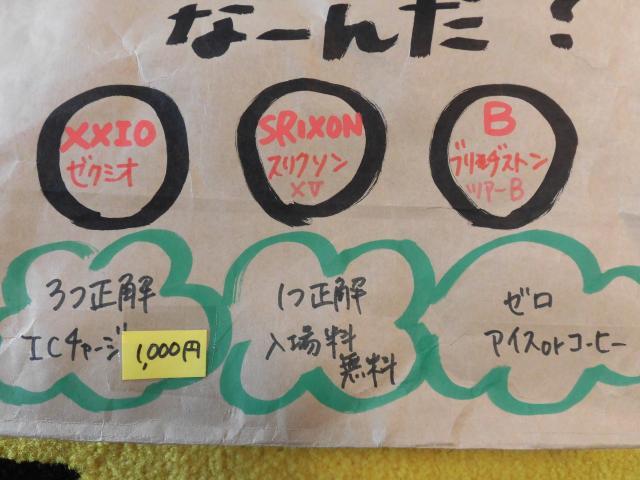 なーんだ？
XXIO
ゼクシオ
SRIXON
スリクソン
XV
B
ブリヂストン
ツアーB
3つ正解
ICチャージ 1,000円
1つ正解
入場料
無料
ゼロ
アイスorコーヒー